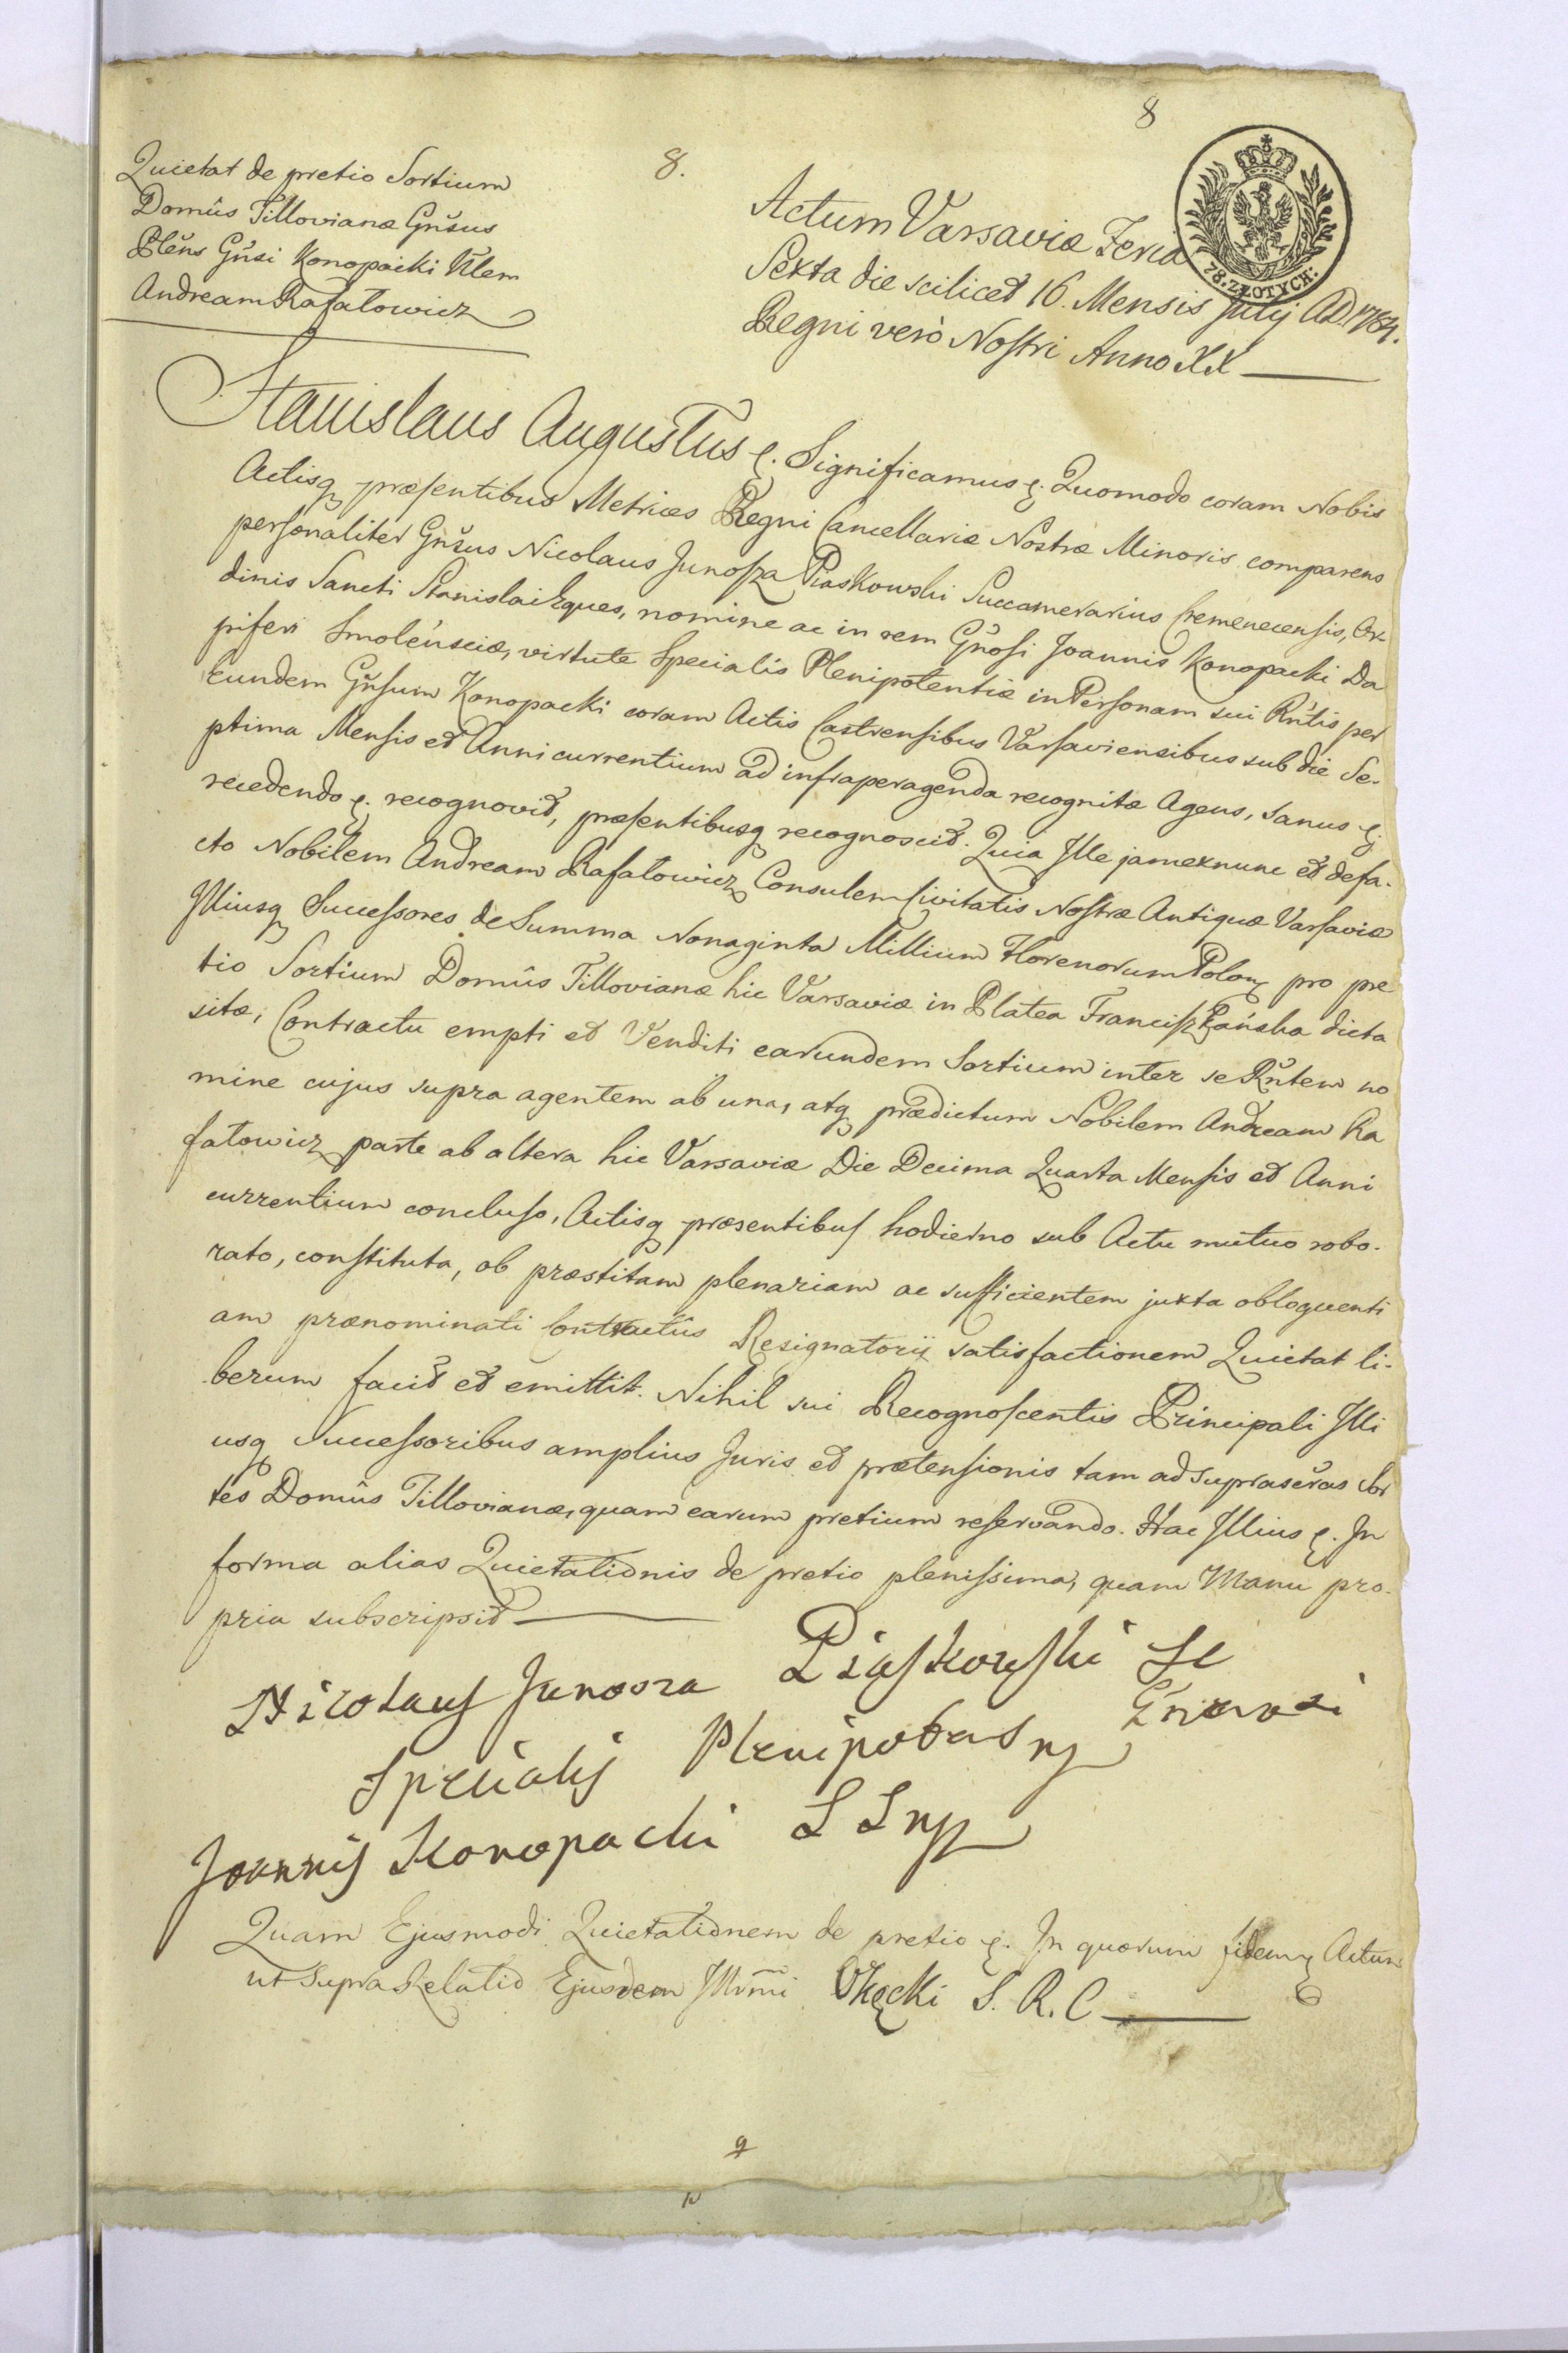 8
8.
Quietat de pretio Sortium
Domûs Tillovianæ Gnŝus
Plens Gnsi Konopacki Nlem
Andream Rafałowicz
78. ZŁOTYCH:
Actum Varsaviæ Feria
Sexta die scilicet 16. Mensis Julij AD. 1784.
Regni verò Nostri Anno XX
Stanislaus Augustus &. Significamus &. Quomodo coram Nobis
Actisq præsentibus Metrices Regni Cancellariæ Nostræ Minoris comparens
personaliter Gnŝus Nicolaus Junosza Piaskowski Succamerarius Cremenecensis, Or-
dinis Sancti Stanislai Eques, nomine ac in rem Gnosi Joannis Konopacki Da
piferi Smolénsciæ, virtute Specialis Plenipotentiæ in Personam sui Rntis per
eundem Gnsum Konopacki coram Actis Castrensibus Varsaviensibus sub die Se-
ptima Mensis et Anni currentium ad infraperagenda recognitæ Agens, sanus &
recedendo &. recognovit, præsentibusq recognoscit. Quia Ille jamexnunc et defa-
cto Nobilem Andream Rafałowicz Consulem Civitatis Nostræ Antiquæ Varsaviæ
Illiusq Successores de Summa Nonaginta Millium Florenorum Polon pro pre
tio Sortium Domûs Tillovianæ hic Varsaviæ in Platea Franciszkańska dicta
sitæ, Contractu empti et Venditi earundem Sortium inter se Rntem no
mine cujus supra agentem ab una, atq prædictum Nobilem Andream Ra
fałowicz parte ab altera hic Varsaviæ Die Decima Quarta Mensis et Anni
currentium concluso, Actisq præsentibus hodierno sub Actu mutuo robo-
rato, constituta, ob præstitam plenariam ac sufficientem juxta obloquenti
am prænominati Contractûs Resignatorij satisfactionem Quietat li-
berum facit et emittit. Nihil sui Recognoscentis Principali Illi
usq Successoribus amplius Juris et prætensionis tam ad supras̃cras Sor
tes Domûs Tillovianæ, quam earum pretium reservando. Hac Illius &. In
forma alias Quietationis de pretio plenissima, quam Manu pro-
pria subscripsit
Nicolaus Junosza Piaskowski
Specialis Plenipotens
Joannis Konopacki
Quam Ejusmodi Quietationem de pretio &. In quorum fidem Actum
ut Supra Relatio Ejusdem Illmi Okęcki S. R. C